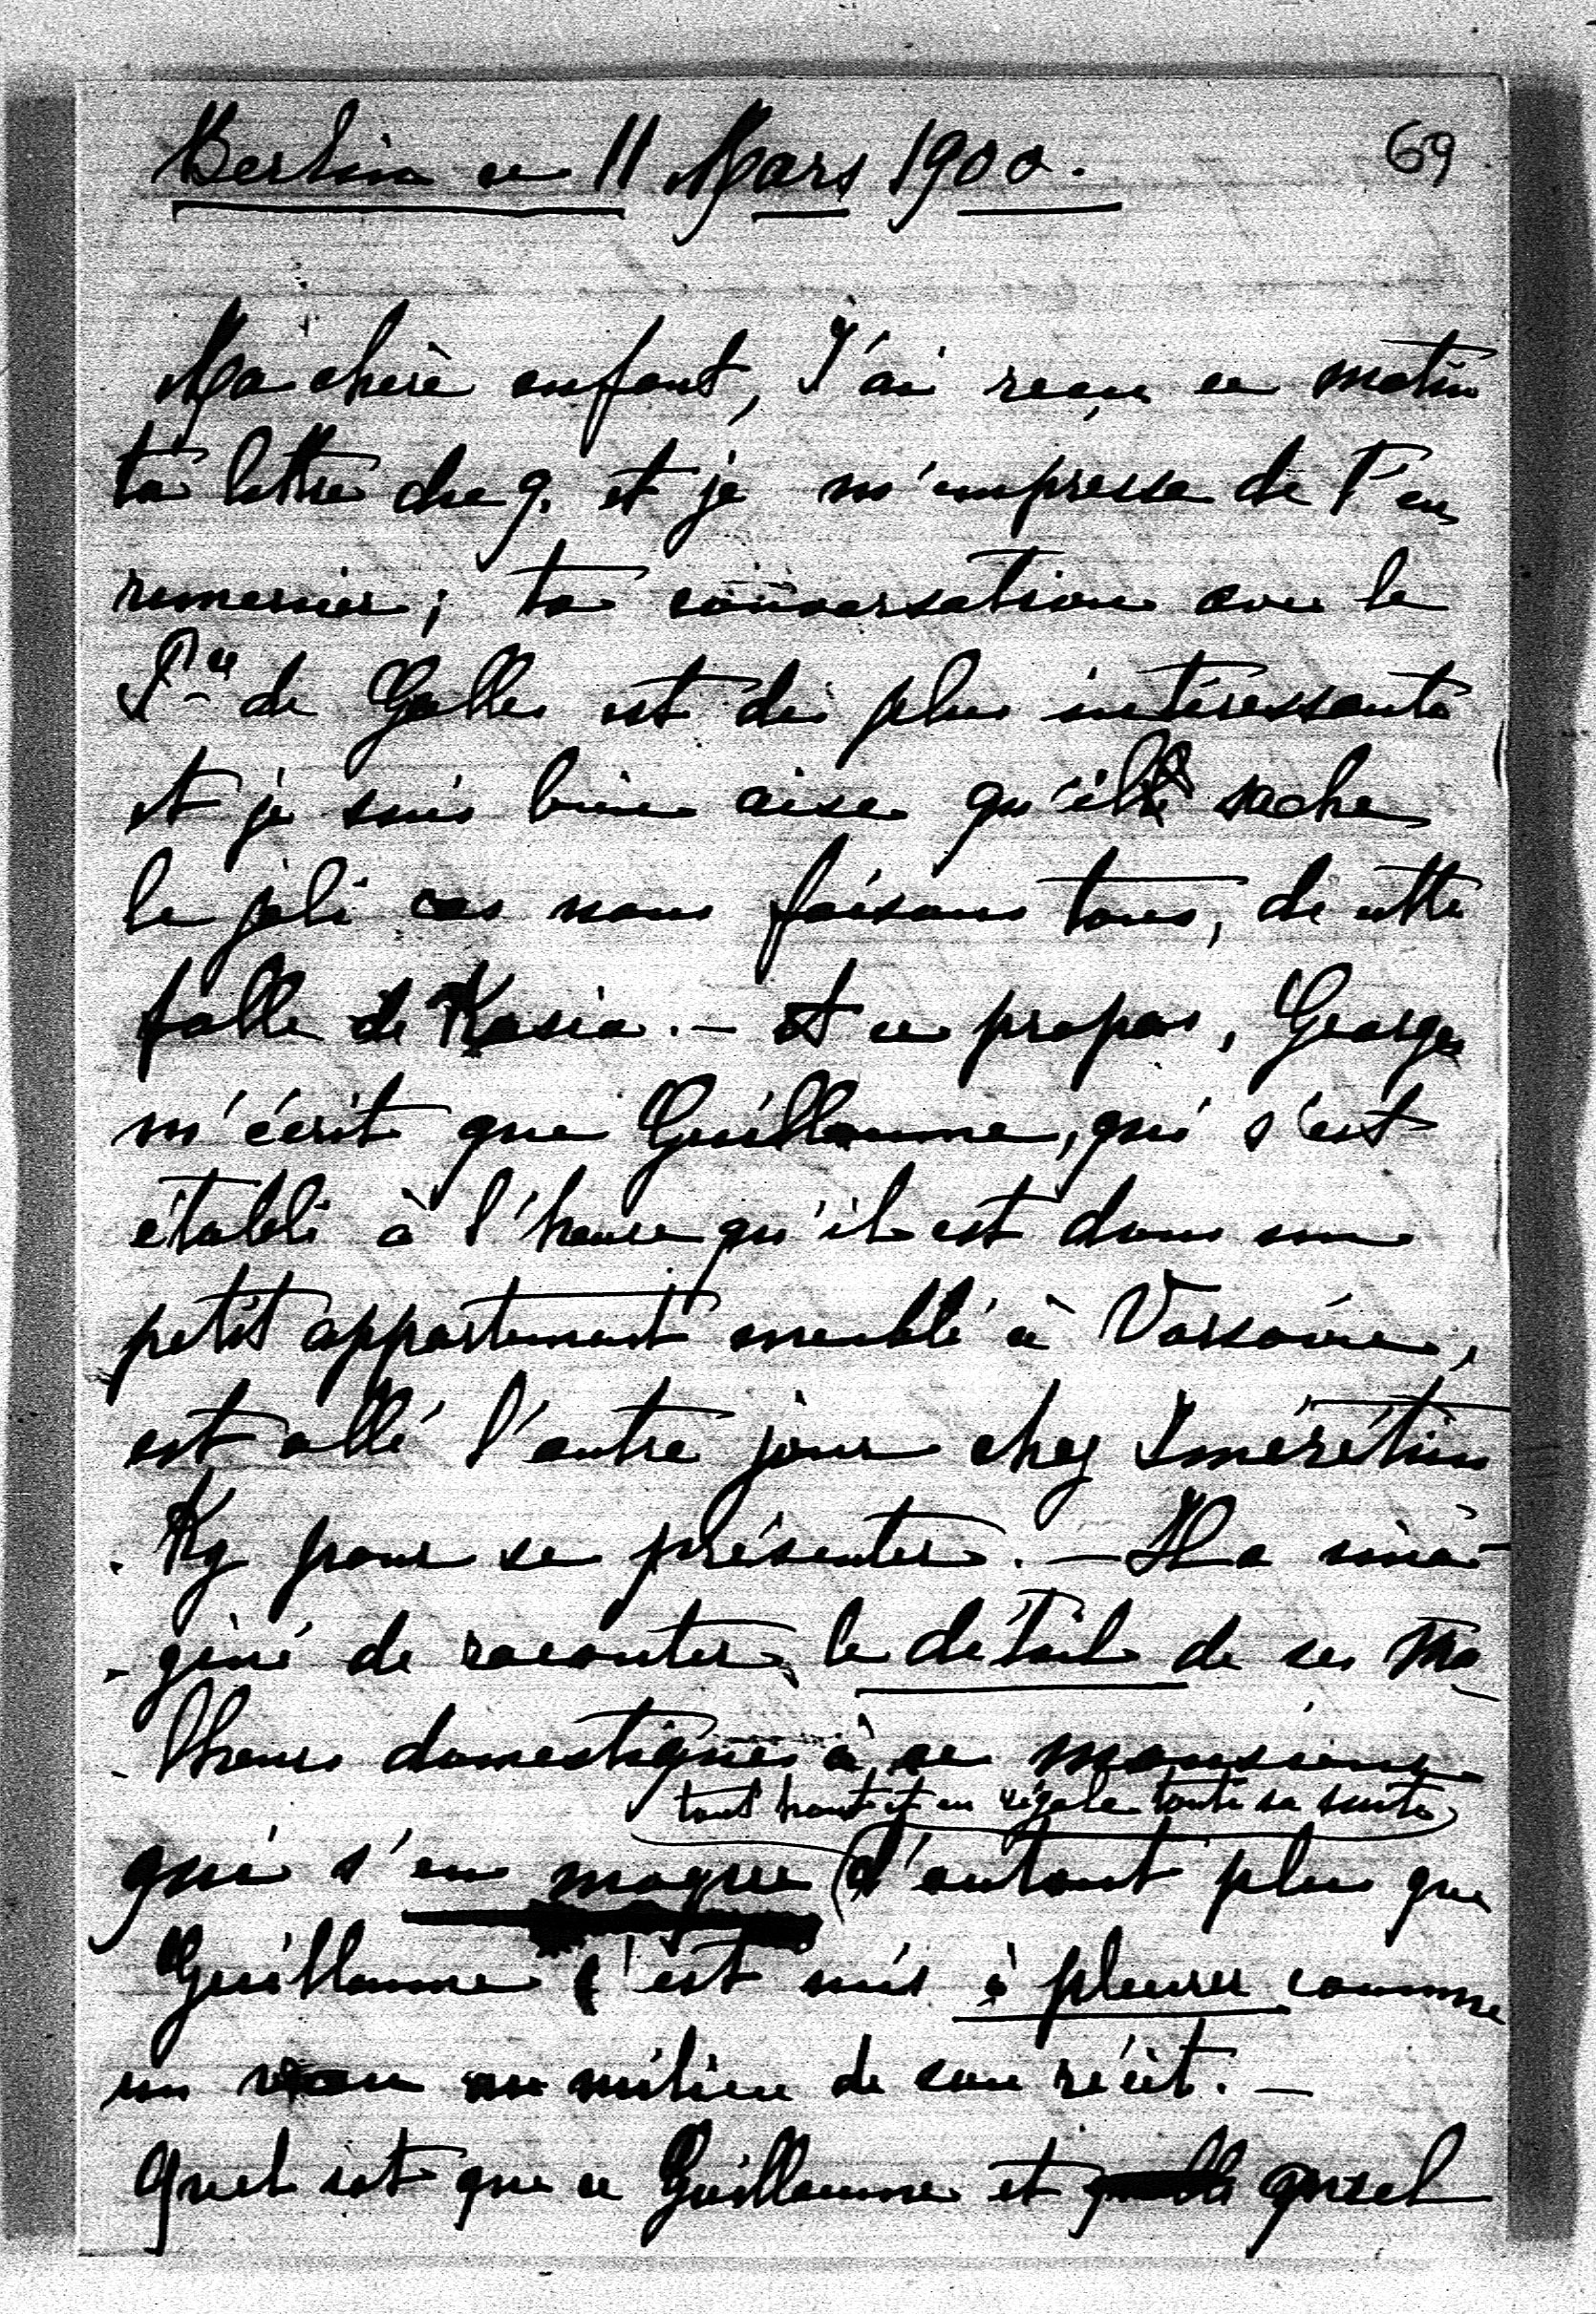 Berlin ce 11 Mars 1900.
69
Ma chère enfant, J'ai reçu ce matin
ta lettre du 9. et je m'empresse de T'en
remercier; ta conversation avec la
Pce de Galles est des plus intéressante
et je suis bien aise qu'elle sache
le joli cas nous faisons tous, de cette
folle de Kasia. — A ce propos, Georges
m'écrit que Guillaume, qui s'est
établi à l'heure qu'il est dans un
petit appartement meublé à Varsovie,
est allé l'autre jour chez Imérétins
Ky pour se présenter. — Il a ima-
-giné de raconter le détail de ses ma
-lheurs domestiques à ce monsieur
tout haut et en régale toute sa suite
qui s'en moque d'autant plus que
Guillaume s'est mis à pleurer comme
un veau au milieu de son récit. —
Quel sot que ce Guillaume et quel